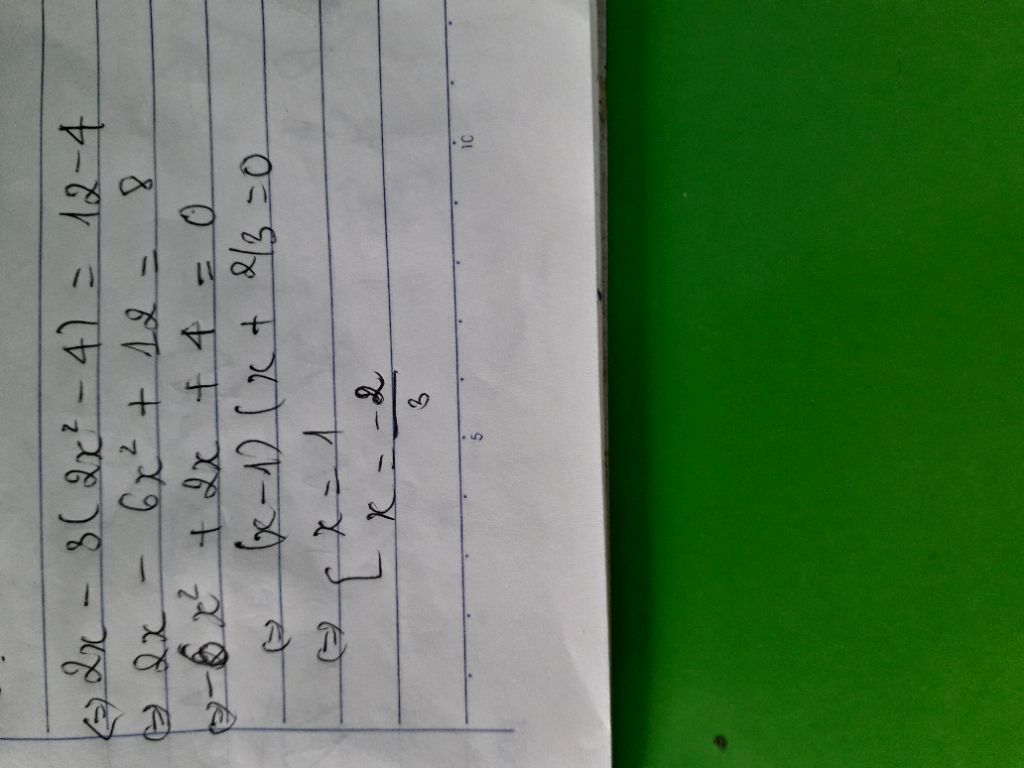 ⇔ 2x - 3(2x² - 4) = 12 - 4
⇔ 2x - 6x² + 12 = 8
⇔ -6x² + 2x + 4 = 0
⇔ (x-1)(x + 2/3 = 0
⇔ [ x = 1
x = -2/3
5
10